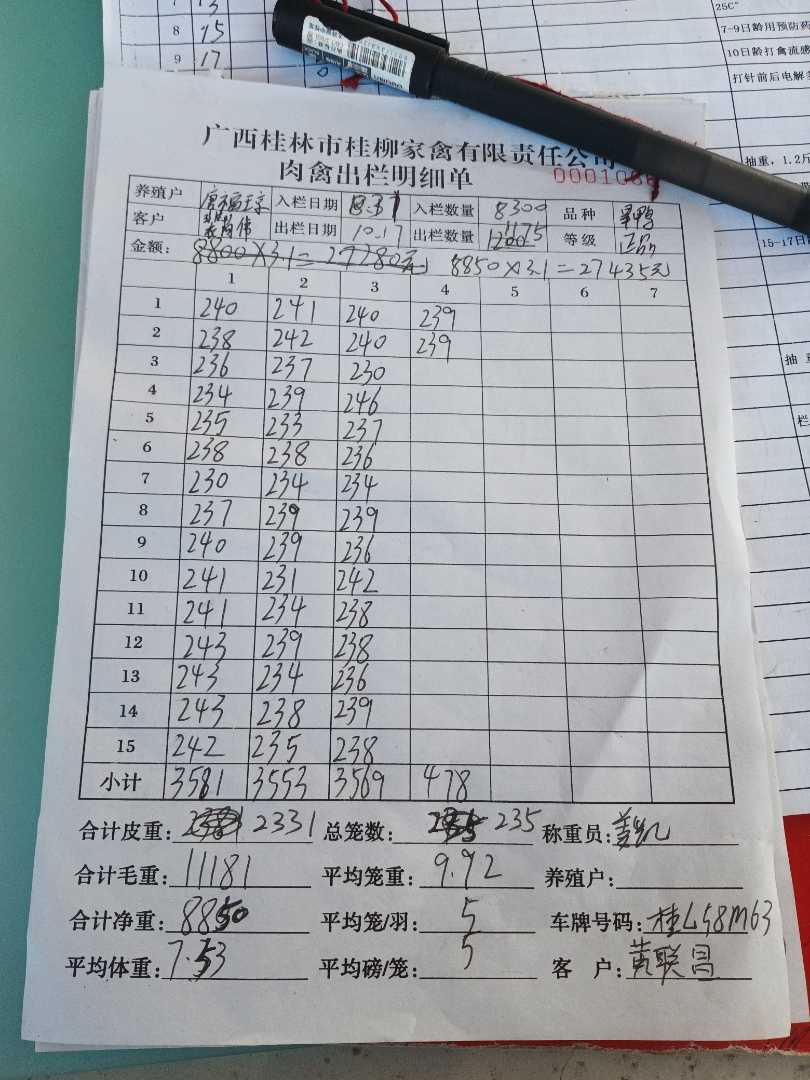 13
8 15
9 17
25C"
7-9日龄用预防药
10日龄打禽流感
打针前后电解
抽重，1.2斤
15-17日
抽重
栏
广西桂林市桂柳家禽有限责任公司
肉禽出栏明细单
养殖户 入栏日期 入栏数量 8300 品种
客户 出栏日期 10.17 出栏数量 1175 等级 正品
金额： 8800×3.1=27280元 8850×3.1=27435元
1 2 3 4 5 6 7
1 240 241 240 239
2 238 242 240 239
3 236 237 230
4 234 239 246
5 235 233 237
6 238 238 236
7 230 234 234
8 237 239 239
9 240 239 236
10 241 231 242
11 241 234 238
12 243 239 238
13 243 234 236
14 243 238 239
15 242 235 238
小计 3581 3553 3569 478
合计皮重： 2331 总笼数： 235 称重员：
合计毛重： 11181 平均笼重： 9.92 养殖户：
合计净重： 8850 平均笼/羽： 5 车牌号码： 桂L58M63
平均体重： 7.53 平均磅/笼： 5 客 户： 黄联昌